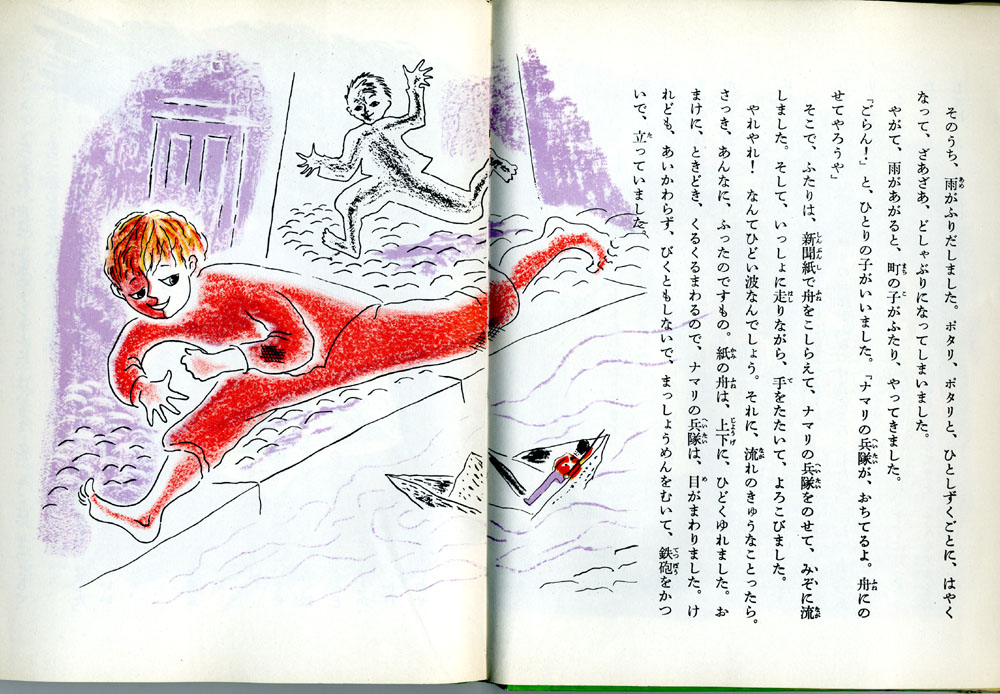 そのうち、雨がふりだしました。ポタリ、ポタリと、ひとしずくごとに、はやく
なって、ざあざあ、どしゃぶりになってしまいました。
やがて、雨があがると、町の子がふたり、やってきました。
「ごらん！」と、ひとりの子がいいました。「ナマリの兵隊が、おちてるよ。舟にの
せてやろうや」
そこで、ふたりは、新聞紙で舟をこしらえて、ナマリの兵隊をのせて、みぞに流
しました。そして、いっしょに走りながら、手をたたいて、よろこびました。
やれやれ！　なんてひどい波なんでしょう。それに、流れのきゅうなことったら。
さっき、あんなに、ふったのですもの。紙の舟は、上下に、ひどくゆれました。お
まけに、ときどき、くるくるまわるので、ナマリの兵隊は、目がまわりました。け
れども、あいかわらず、びくともしないで、まっしょうめんをむいて、鉄砲をかつ
いで、立っていました。